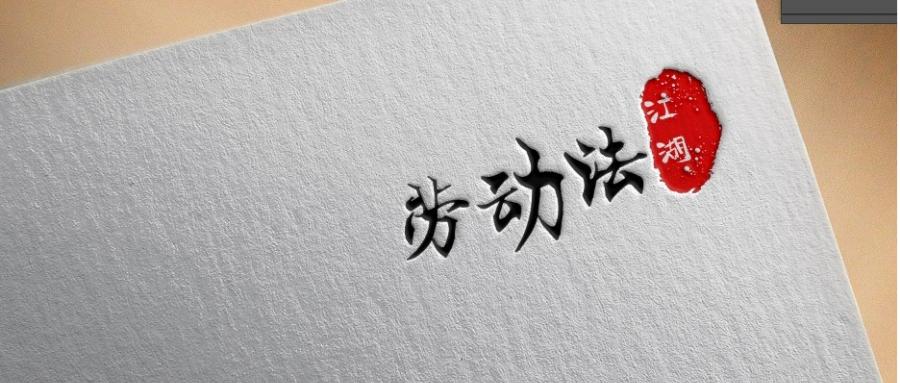 劳动法
江湖